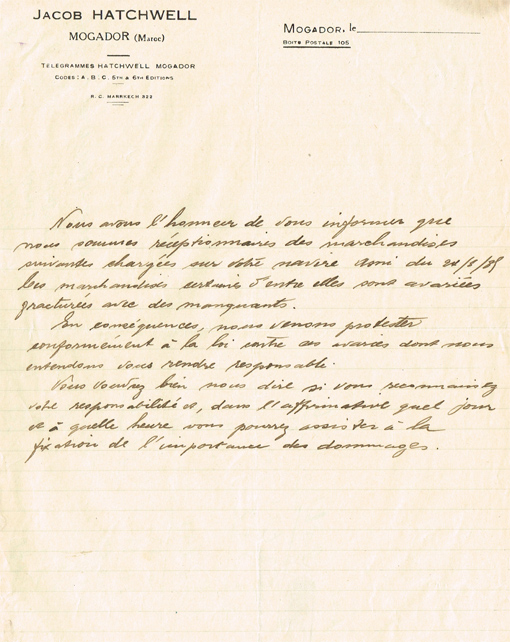 JACOB HATCHWELL
MOGADOR (MAROC)
TÉLÉGRAMMES HATCHWELL MOGADOR
CODES: A. B. C. 5TH & 6TH EDITIONS
R. C. MARRKECH 922
MOGADOR, le
BOITE POSTALE 105
Nous avons l'honneur de vous informer que
nous sommes réceptionnaires des marchandises
suivantes chargées sur votre navire du
les marchandises certaines d'entre elles sont avariées
fracturées avec des manquants.
En conséquences, nous venons protester
conformément à la loi contre ces dont nous
entendons vous rendre responsable.
Vous voudrez bien nous dire si vous reconnaissez
votre responsabilité et, dans l'affirmative quel jour
et à quelle heure vous pourrez assister à la
fixation de l'importance des dommages.